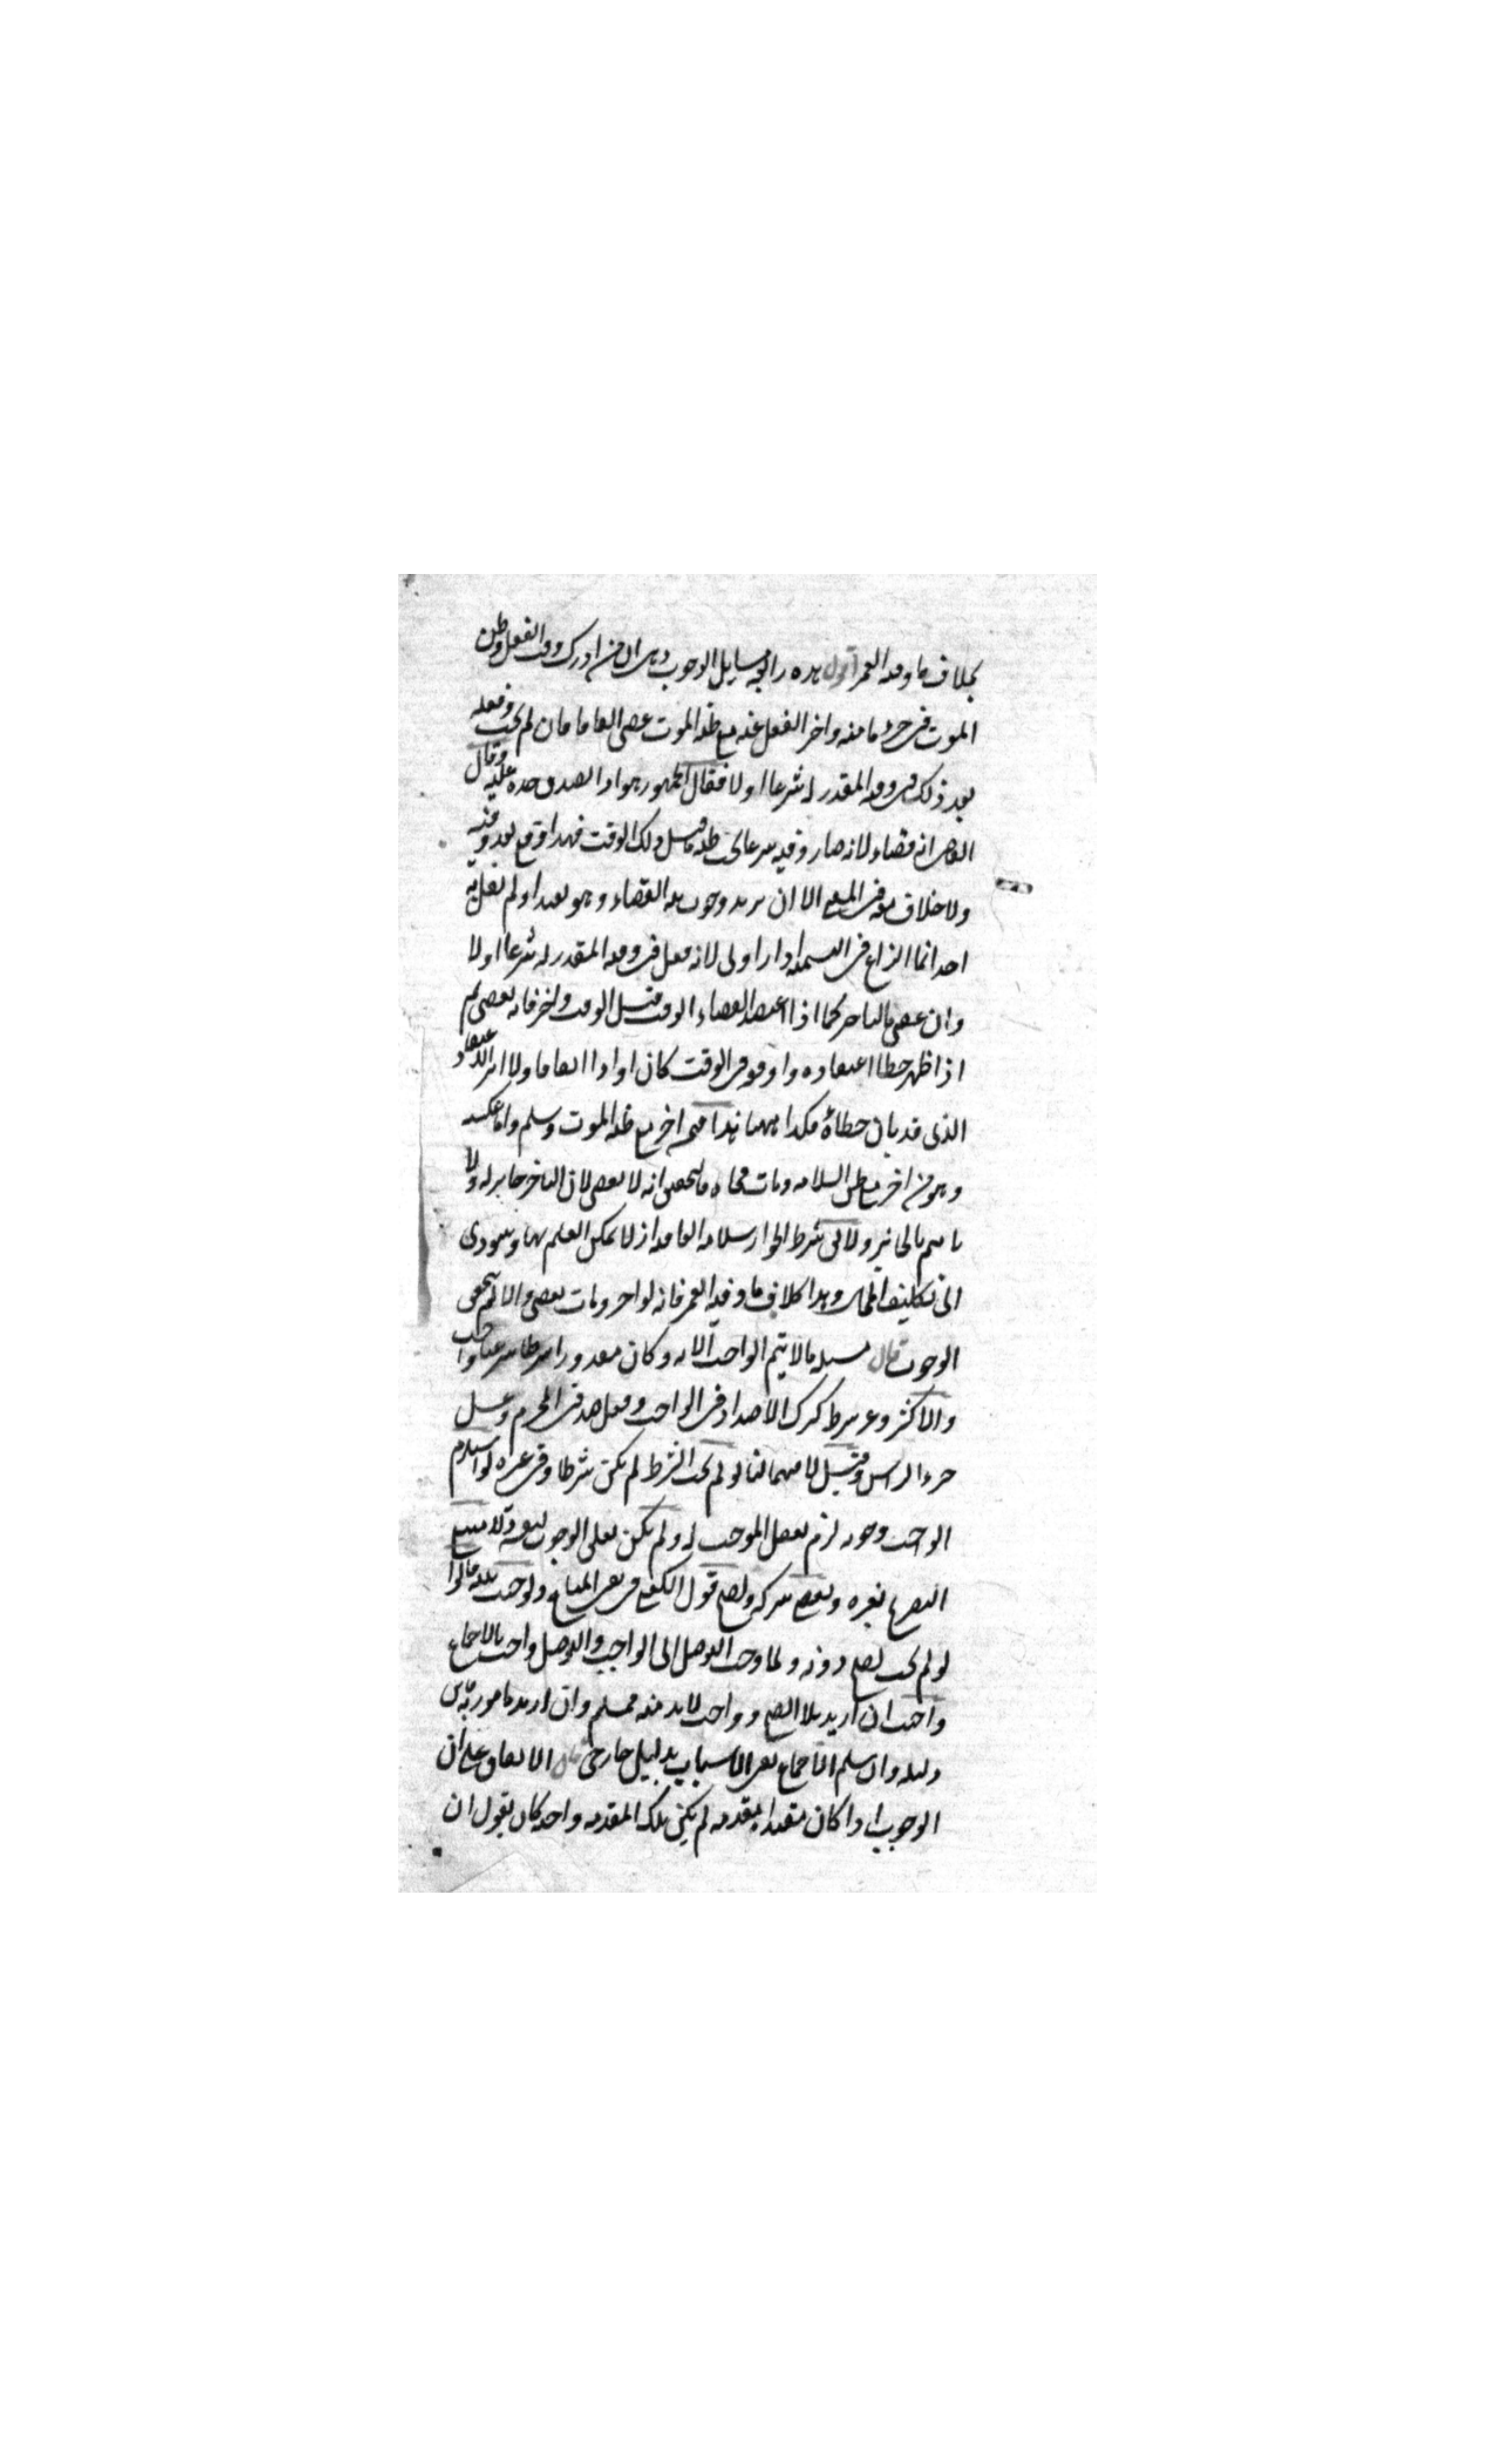 بخلاف ما وقته العمر اقول هذه رابعة مسايل الوجوب وهى ان من ادرك وقت الفعل وظن
الموت فى جزء ما منه واخر الفعل عنه مع ظنه الموت عصى اتفاقا فان لم يمت وفعله
بعد ذلك فى وقته المقدر له شرعا اولا فقال الجمهور هو اداء لصدق حده عليه وقال
القاضى انه قضاء لانه صار وقته شرعا بحسب ظنه ما قبل ذلك الوقت فهذا وقع بعد وقته
ولا خلاف معه فى المعنى الا ان يريد وجوب نية القضاء وهو بعيد اذ لم يقل به
احد انما النزاع فى التسمية اداء اولى لانه فعل فى وقته المقدر له شرعا اولا
وان عصى بالتاخير كما اذا اعتقد انقضاء الوقت قبل الوقت واخر فانه يعصى ثم
اذا ظهر خطا اعتقاده واوقعه فى الوقت كان اداء اتفاقا ولا اثر للاعتقاد
الذى قد بان خطاؤه فكذا ههنا هذا فيمن اخر مع ظنه الموت وسلم واما عكسه
وهو من اخر مع ظن السلامة ومات فجاه فالتحقيق انه لا يعصى لان التاخير جايز له ولا
تاثيم بالجايز ولا يقال شرط الجواز سلامة العاقبة اذ لا يمكن العلم بها فيودى
الى تكليف المحال وهذا بخلاف ما وقته العمر فانه لو اخر ومات عصى والا لم يتحقق
الوجوب قال مسله ما لا يتم الواجب الا به وكان مقدورا شرطا شرعيا واجب
والاكثر وغير شرط كترك الاضداد فى الواجب وفعل ضد فى المحرم وغسل
جزء الراس وقيل لا فيهما لنا لو لم يجب الشرط لم يكن شرطا وفى غيره لو استلزم
الواجب وجوبه لزم تعقل الموجب له ولم يكن تعلق الوجوب لنفسه ولامتنع
التصريح بغيره ولعصى بتركه ولصح قول الكعبى فى نفى المباح ولوجبت نيته قالوا
لو لم يجب لصح دونه ولما وجب التوصل الى الواجب والتوصل واجب بالاجماع
واجيب ان اريد بلا يصح وواجب لا بد منه فمسلم وان اريد مامور به فاين
دليله وان سلم الاجماع ففى الاسباب بدليل خارجى قال الاتفاق على ان
الوجوب اذا كان مقيدا بمقدمة لم يكن تلك المقدمة واجبة كان يقول ان